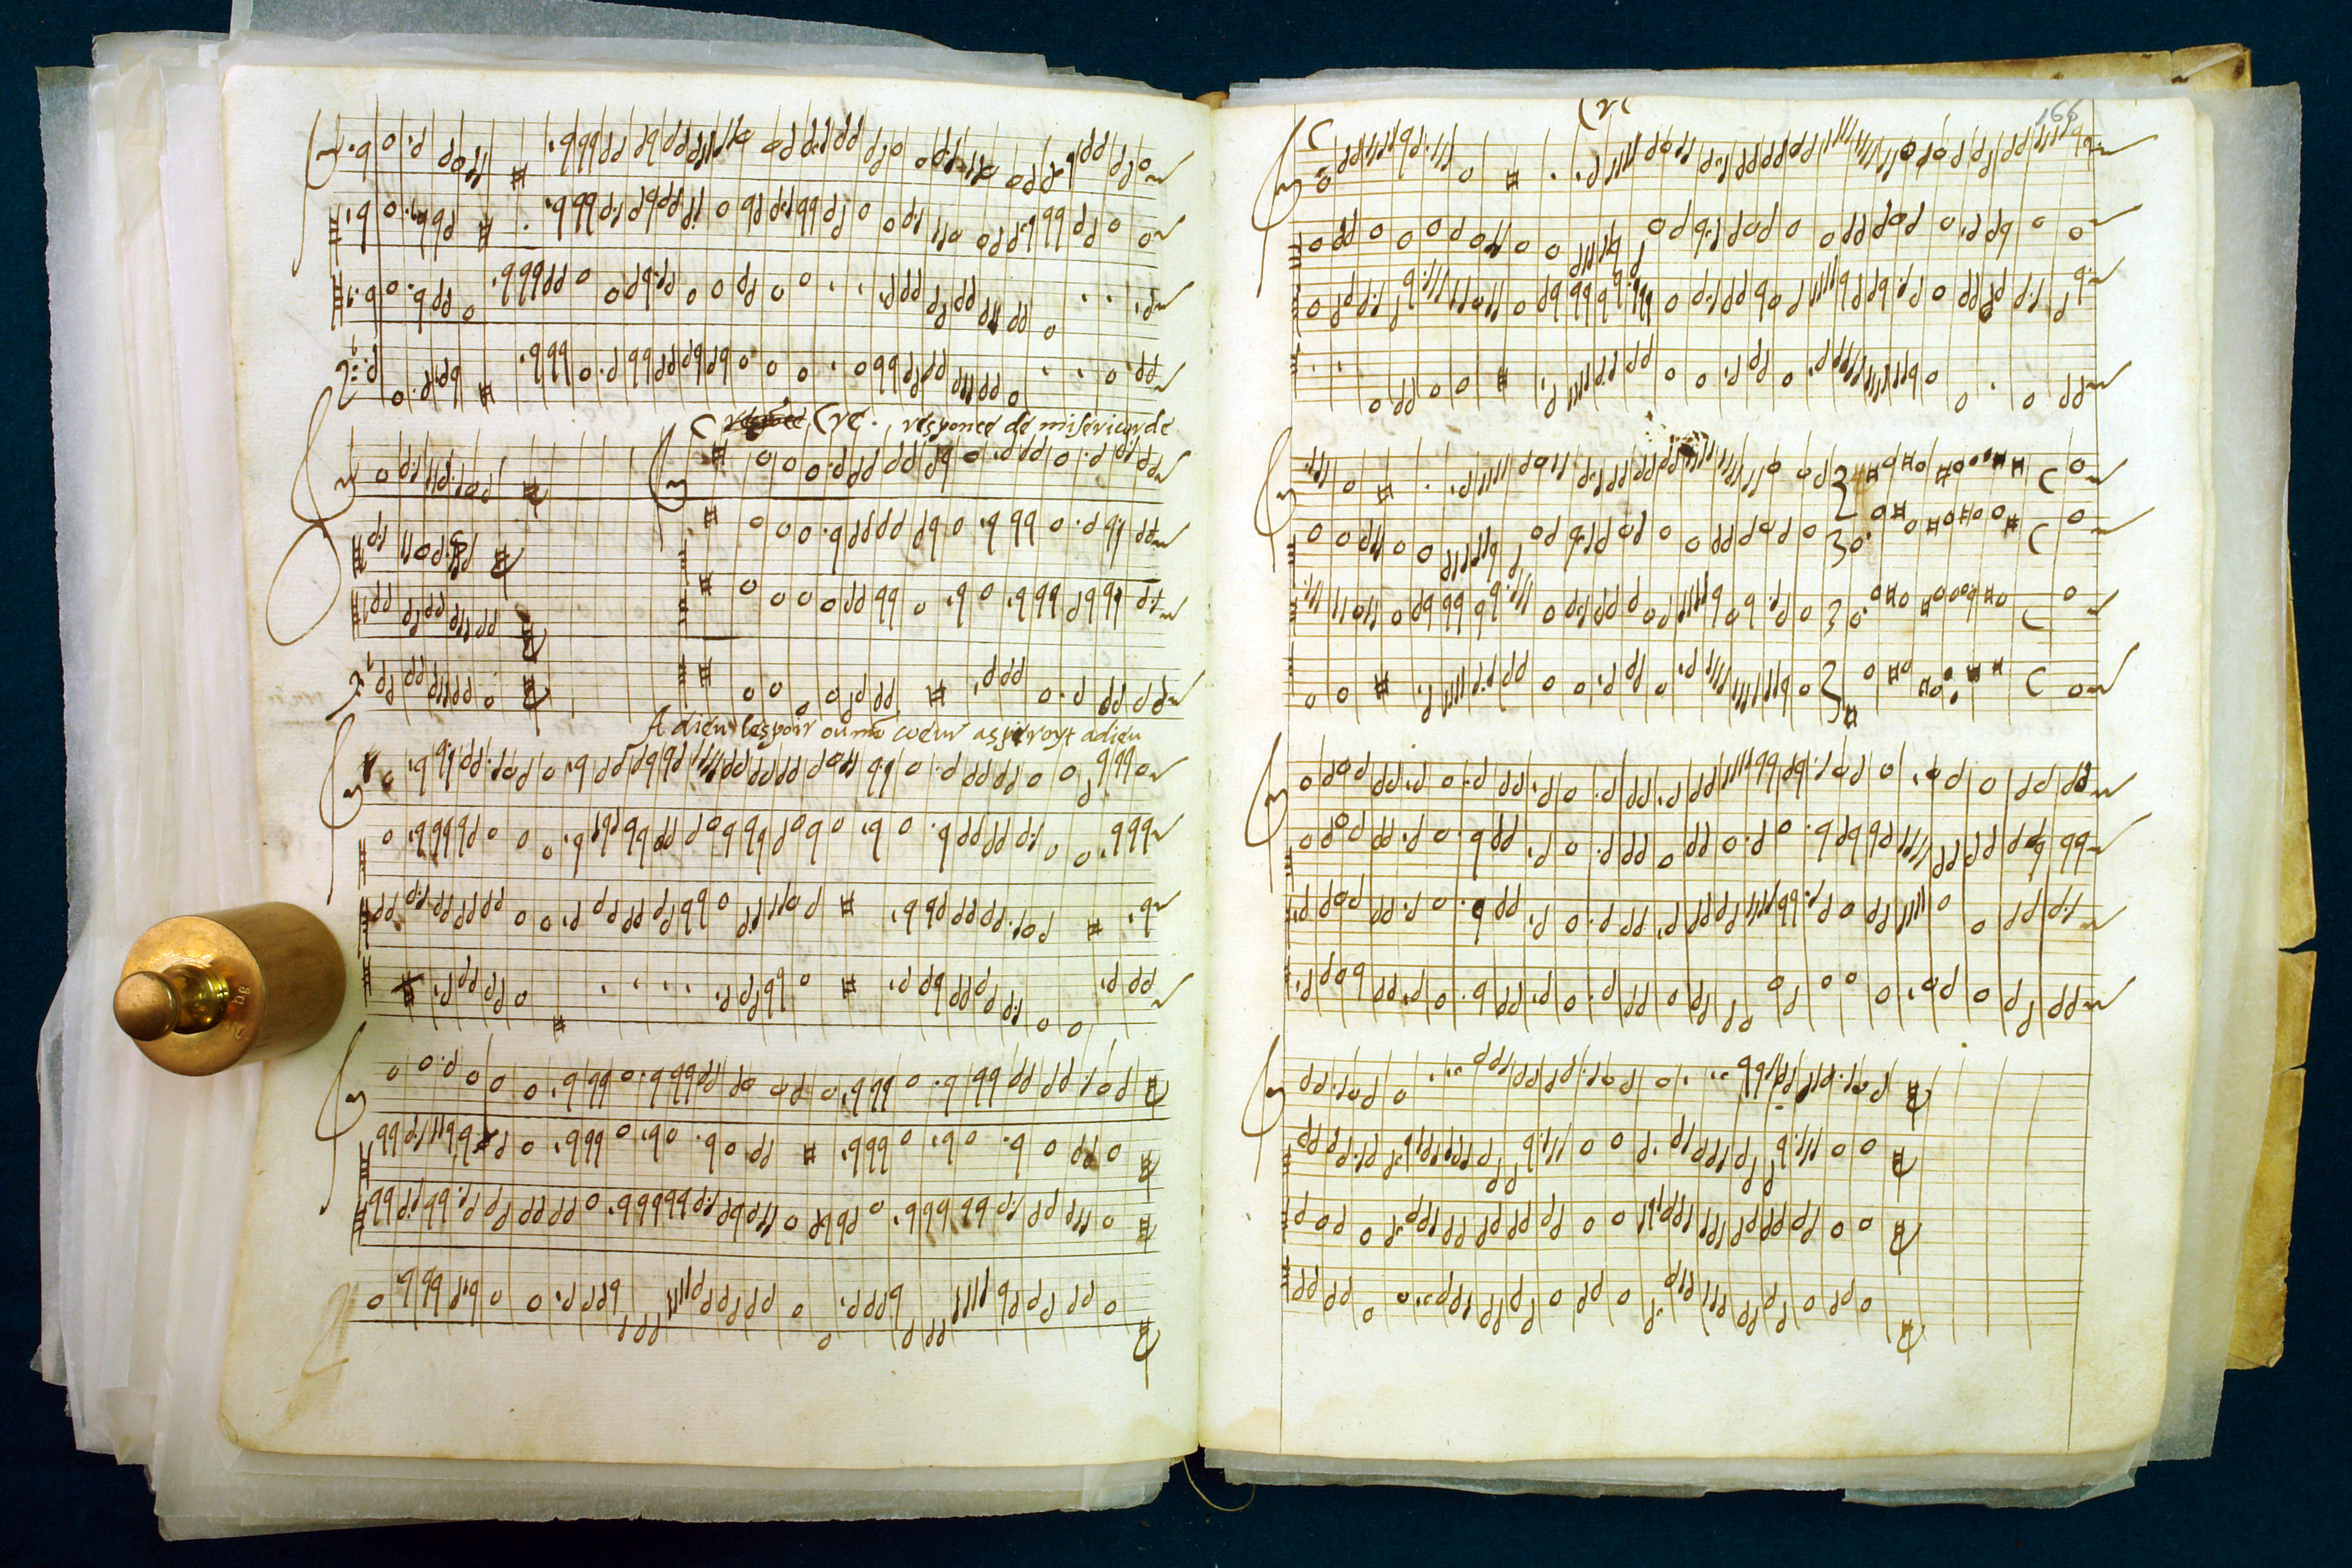 responce de misericorde
Adieu lespoir ou mō coeur aspiroyt adieu
166